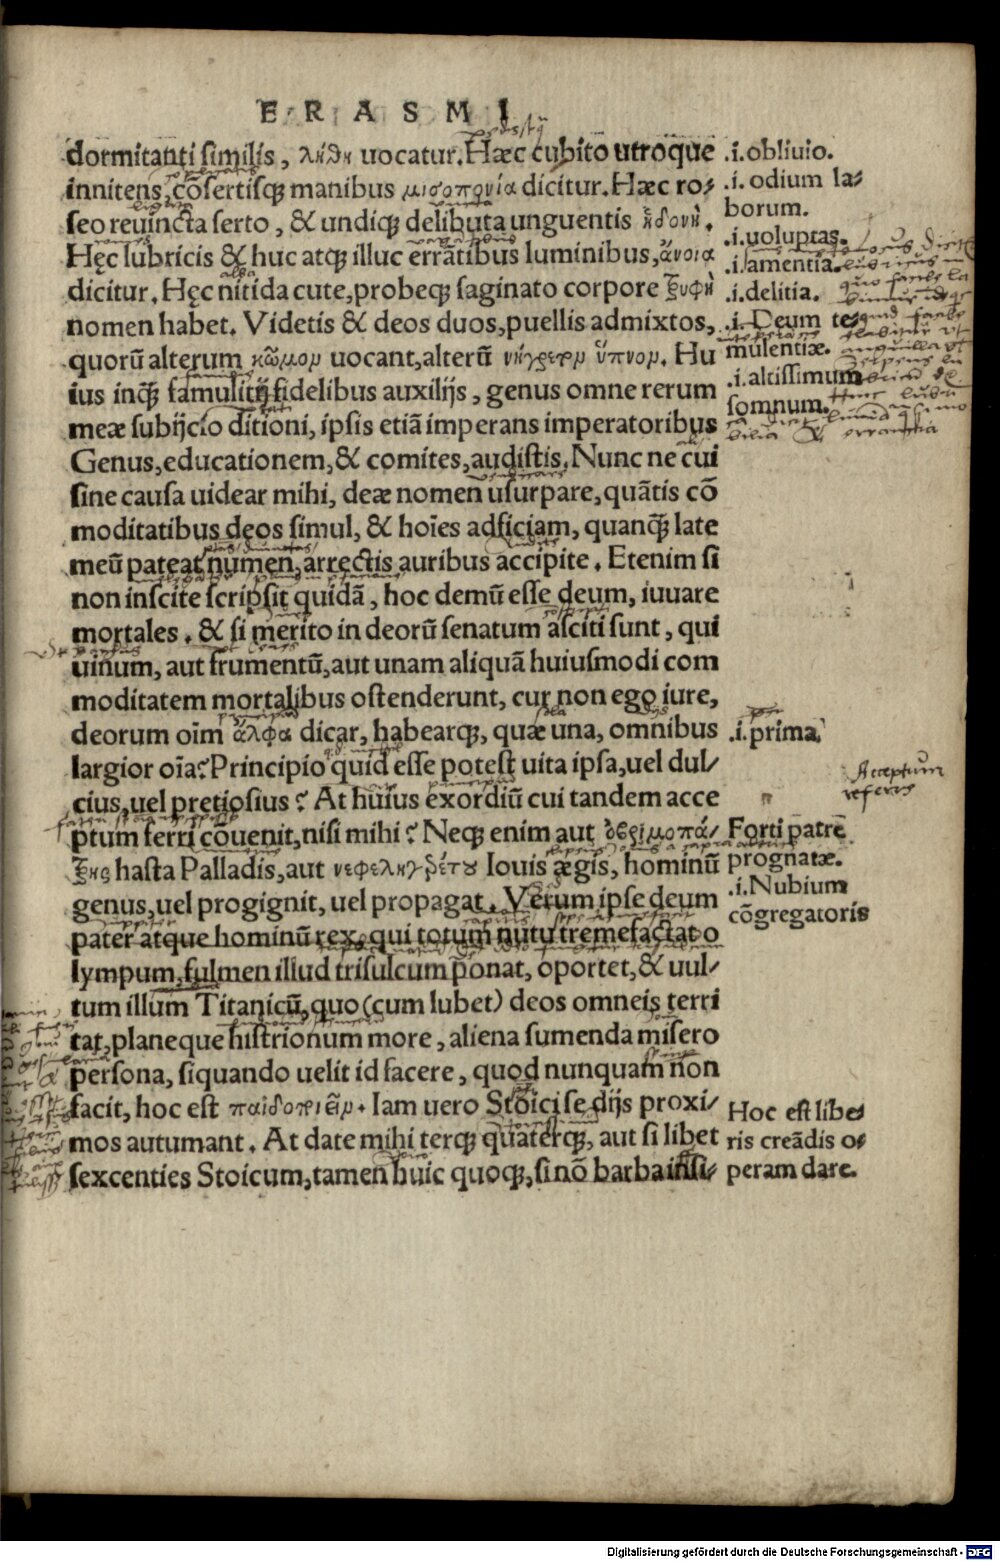 ERASMI
dormitanti similis, λήθη uocatur. Hæc cubito utroque
innitens, cōsertisq; manibus μισοπονία dicitur. Hæc ro-
seo reuincta serto, & undiq; delibuta unguentis ἡδονή.
Hęc lubricis & huc atq; illuc errātibus luminibus, ἄνοια
dicitur. Hęc nitida cute, probeq; saginato corpore τρυφὴ
nomen habet. Videtis & deos duos, puellis admixtos,
quorū alterum κῶμον uocant, alterū νήγρετον ὕπνον. Hu
ius inq̄ famulitij fidelibus auxilijs, genus omne rerum
meæ subijcio ditioni, ipsis etiā imperans imperatoribus
Genus, educationem, & comites, audistis. Nunc ne cui
sine causa uidear mihi, deæ nomen usurpare, quātis cō
moditatibus deos simul, & hoīes adficiam, quanq̄ late
meū pateat numen, arrectis auribus accipite. Etenim si
non inscite scripsit quidā, hoc demū esse deum, iuuare
mortales. & si merito in deorū senatum asciti sunt, qui
uinum, aut frumentū, aut unam aliquā huiusmodi com
moditatem mortalibus ostenderunt, cur non ego iure,
deorum oīm ἄλφα dicar, habearq;, quæ una, omnibus
largior oīa? Principio quid esse potest uita ipsa, uel dul-
cius, uel pretiosius? At huius exordiū cui tandem acce
ptum ferri cōuenit, nisi mihi? Neq; enim aut ὀβριμοπά-
τρης hasta Palladis, aut νεφεληγρέτου Iouis ægis, hominū
genus, uel progignit, uel propagat. Verum ipse deum
pater atque hominū rex, qui totum nutu tremefactat o
lympum, fulmen illud trisulcum ponat, oportet, & uul-
tum illum Titanicū, quo (cum lubet) deos omneis terri
tat, planeque histrionum more, aliena sumenda misero
persona, siquando uelit id facere, quod nunquam non
facit, hoc est παιδοποιεῖν. Iam uero Stoici se dijs proxi-
mos autumant. At date mihi terq; quaterq;, aut si libet
sexcenties Stoicum, tamen huic quoq;, si nō barba insi-
.i. obliuio.
.i. odium la-
borum.
.i. uoluptas.
.i. amentia.
.i. delitia.
.i. Deum te-
mulentiæ.
.i. altissimum
somnum.
.i. prima
Acceptum
referre
Forti patre
prognatæ.
.i. Nubium
cōgregatoris
Hoc est libe-
ris creādis o-
peram dare.
Digitalisierung gefördert durch die Deutsche Forschungsgemeinschaft - DFG